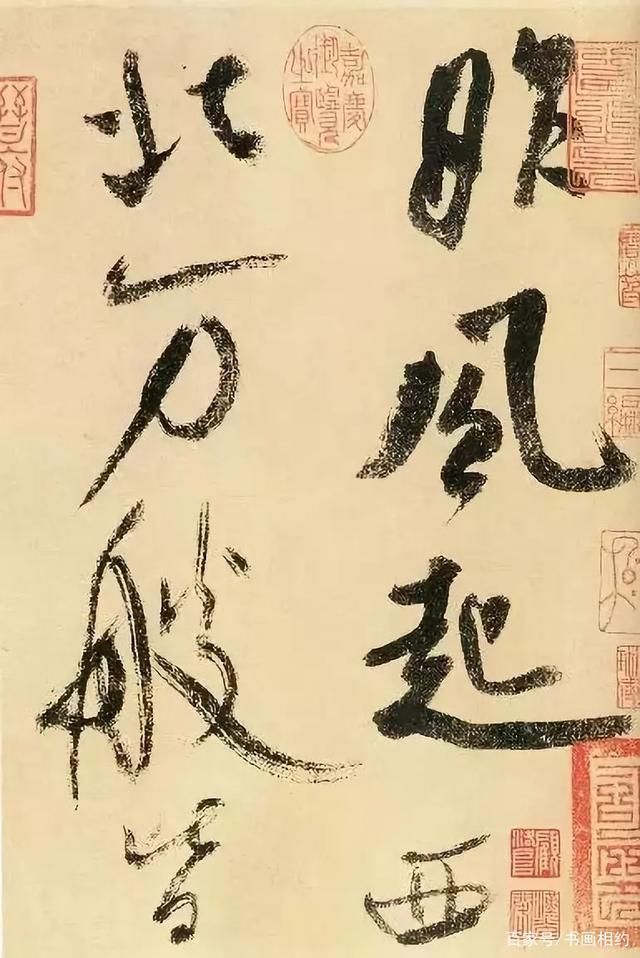 昨風起西
北万艘皆
嘉慶御覽之寶
三編
百家号/书画相约